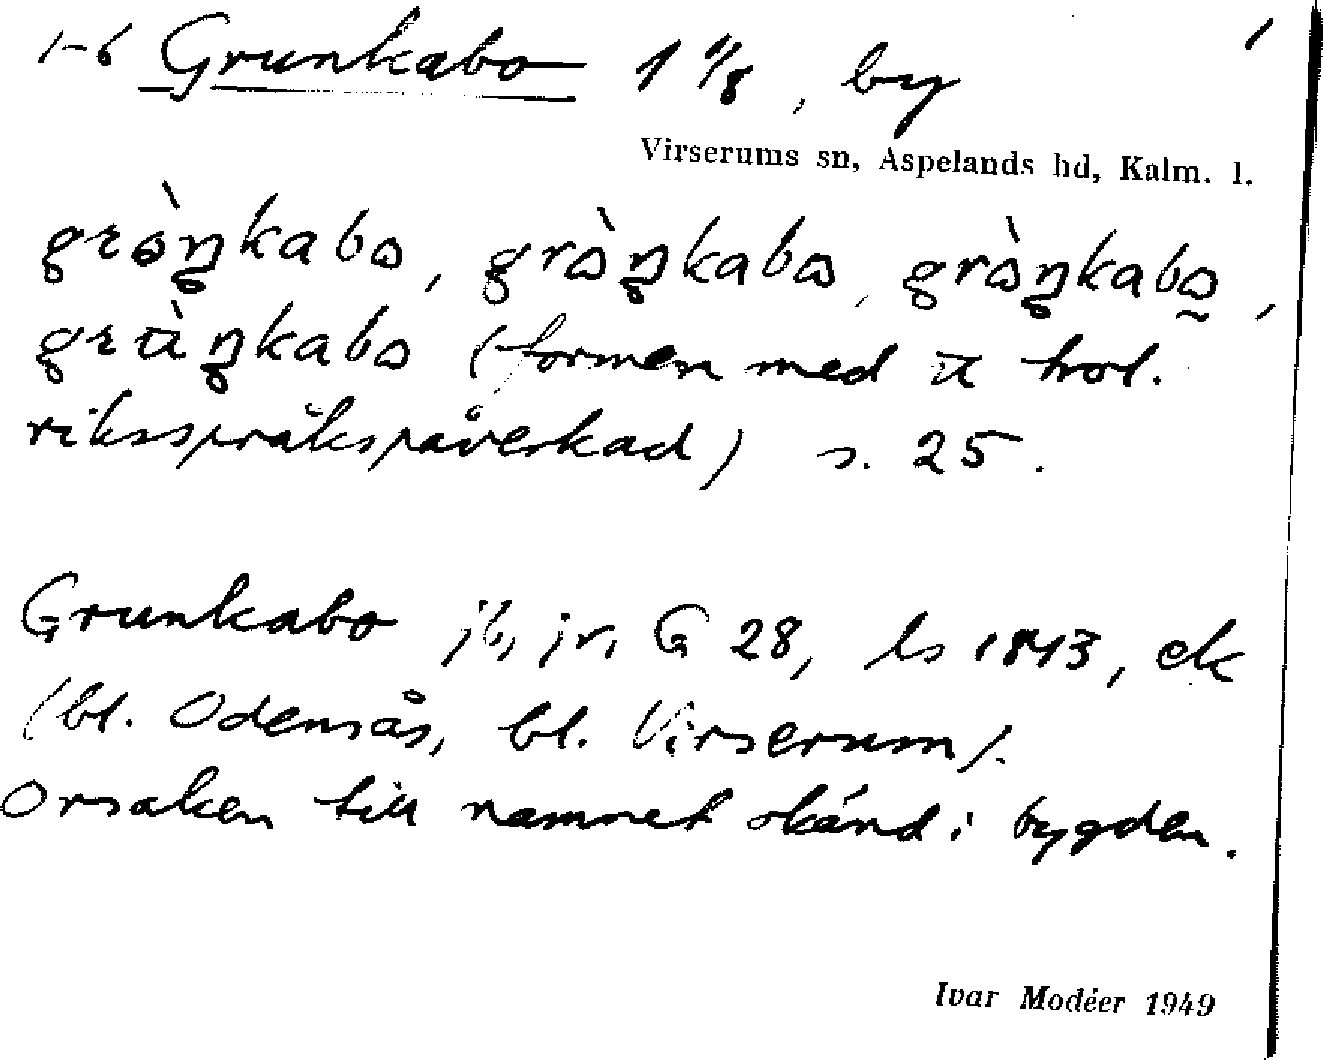 1-6 Grunkabo 1 1/8, by
Virserums sn, Aspelands hd, Kalm. l.
grɷ̀ŋkabɷ, grɷ̀ŋkabɷ, grɷ̀ŋkabɷ̰,
grùŋkabɷ (formen med u trol.
riksspråkspåverkad) s. 25.
Grunkabo jb, jr, G 28, ls 1843, ek
(bl. Odensås, bl. Virserum).
Orsaken till namnet okänd i bygden.
Ivar Modéer 1949